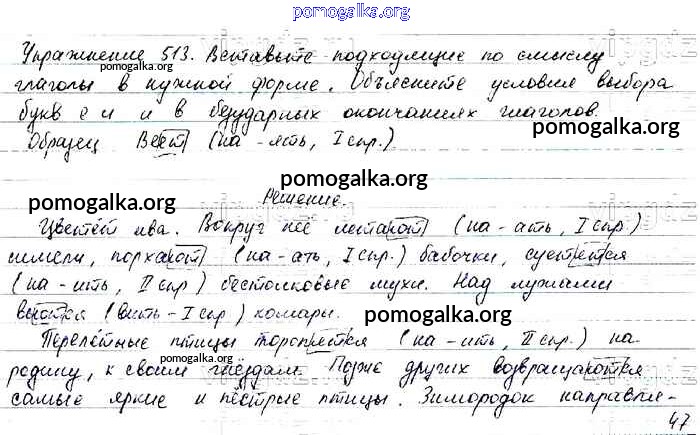 pomogalka.org
Упражнение 513. Вставьте подходящие по смыслу
pomogalka.org
глаголы в нужной форме. Объясните условия выбора
букв е и и в безударных окончаниях глаголов.
pomogalka.org
Образец. Веет (на -ять, I спр.)
pomogalka.org
Решение.
pomogalka.org
Цветёт ива. Вокруг неё летают (на -ать, I спр.)
шмели, порхают (на -ать, I спр.) бабочки, суетятся
(на -ить, II спр) бестолковые мухи. Над лужами
вьются (вить - I спр) комары.
pomogalka.org
Перелётные птицы торопятся (на -ить, II спр.) на
pomogalka.org
родину, к своим гнёздам. Позже других возвращаются
самые яркие и пёстрые птицы. Зимородок направля-
47